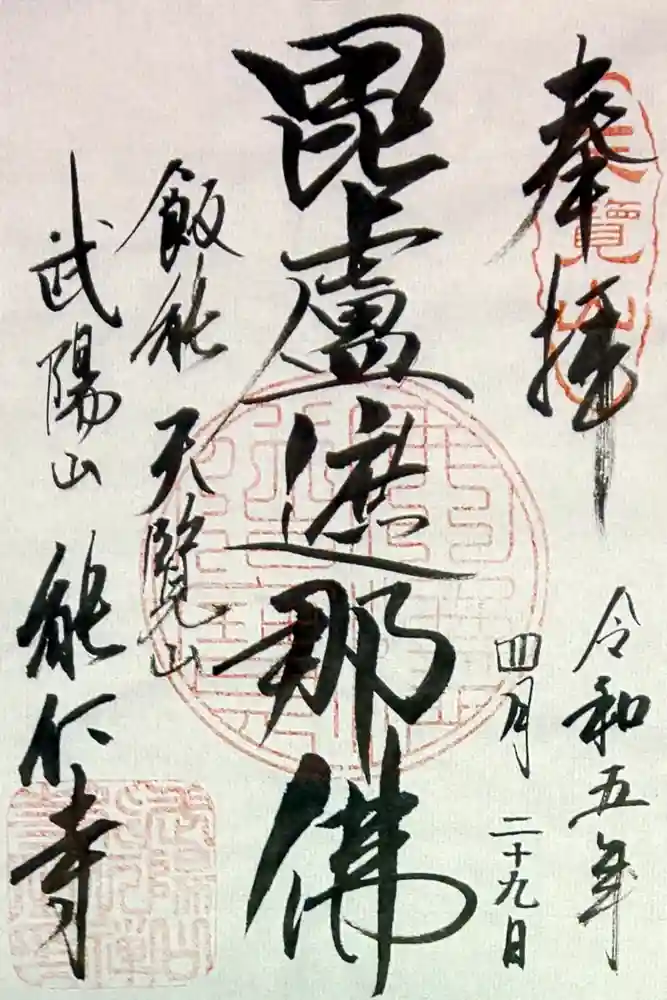 奉拝
天覧山
令和五年
四月二十九日
毘盧遮那佛
飯能 天覧山
武陽山 能仁寺